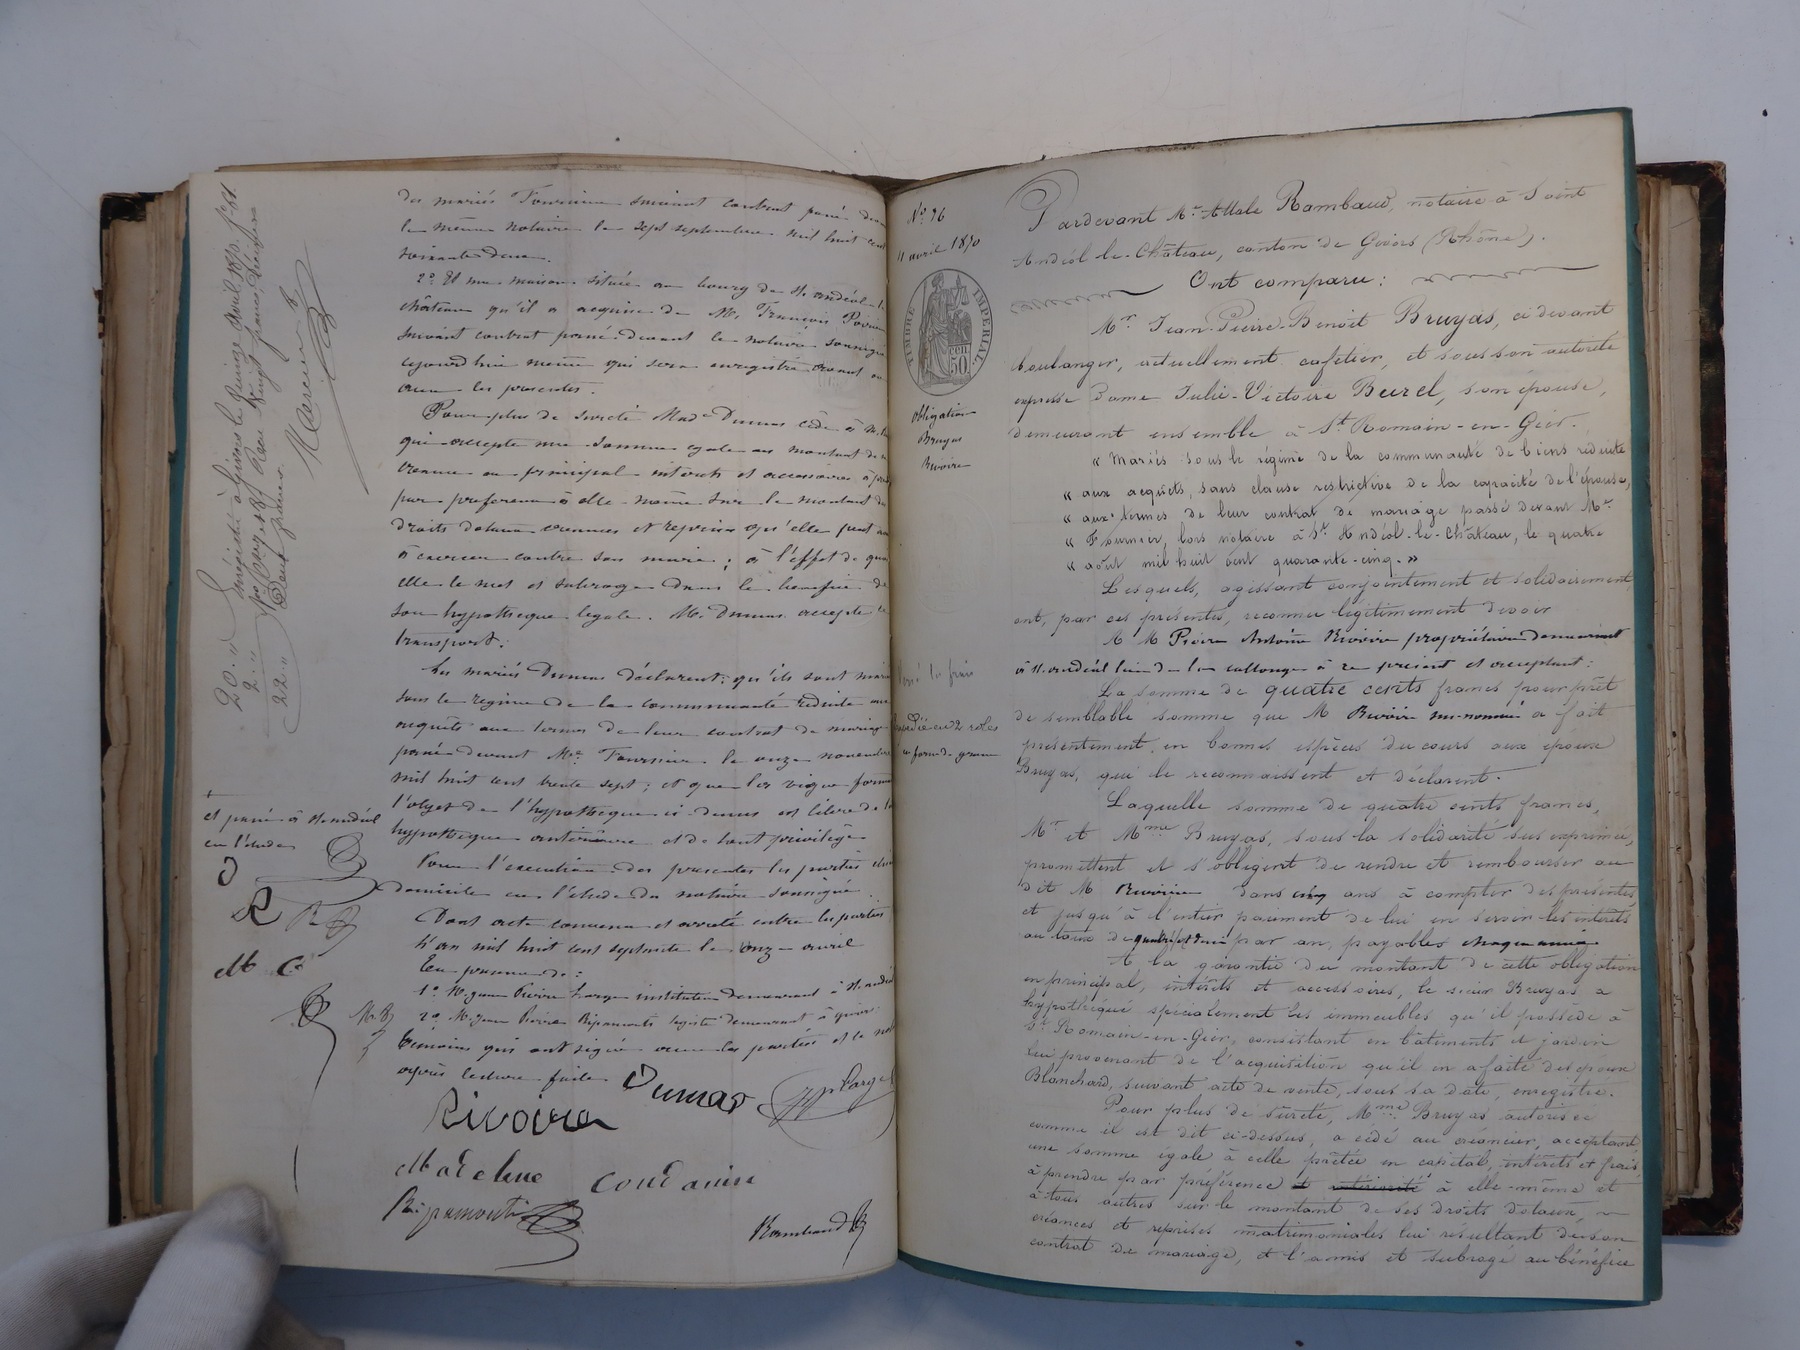 des mariés Fournier suivant contrat passé devant
le même notaire le sept septembre mil huit cent
soixante deux.
2º Et une maison située au bourg de St. andéol le
château qu'il a acquise de M. François
suivant contrat passé devant le notaire soussigné
cejourd'hui même qui sera enregistré avant ou
avec les présentes.
Pour plus de sureté Made Dumas cède à M.
qui accepte une somme égale au montant de sa
créance en principal intérêts et accessoires à prendre
par préférence à elle même sur le montant des
droits dotaux créances et reprises qu'elle peut avoir
à exercer contre son mari; à l'effet de quoi
elle le met et subroge dans le bénéfice de
son hypothèque légale. M. Dumas accepte ce
transport.
Les mariés Dumas déclarent: qu'ils sont mariés
sous le régime de la communauté réduite aux
acquêts aux termes de leur contrat de mariage
passé devant Me. Fournier le onze novembre
mil huit cent trente sept; et que la vigne formant
l'objet de l'hypothèque ci dessus est libre de toute
hypothèque antérieure et de tout privilège
Pour l'exécution des présentes les parties élisent
domicile en l'étude du notaire soussigné.
Dont acte convenu et arrêté entre les parties
L'an mil huit cent septante le onze avril
En présence de:
1º M. Jean Pierre Large instituteur demeurant à St. andéol
2º M. Jean Pierre Ripamonti demeurant à givors
témoins qui ont signé avec les parties et le notaire
après lecture faite
Dumas JP Large
Rivoire
Madeleine Condamin
Ripamonti
Rambaud
et passé à St. andéol
en l'étude
D
R R
M C
Enregistré à givors le quinze avril 1870, fº 61
Reçu vingt francs, décime
Deux francs
Mercier
20. "
2. "
22 "
Nº. 96
11 avril 1870
TIMBRE IMPÉRIAL
50 cen
Obligation
Bruyas
Rivoire
en 2 rôles
en forme de grosse
Pardevant Me. Attale Rambaud, notaire à Saint
Andéol-le-Château, canton de Givors (Rhône).
Ont comparu:
Mr. Jean-Pierre-Benoit Bruyas, ci devant
boulanger, actuellement cafetier, et sous son autorité
expresse Dame Julie-Victoire Beurel, son épouse,
demeurant ensemble à St. Romain-en-Gier.
« Mariés sous le régime de la communauté de biens réduite
« aux acquêts, sans clause restrictive de la capacité de l'épouse,
« aux termes de leur contrat de mariage passé devant Me.
« Fournier, lors notaire à St. Andéol-le-Château, le quatre
« août mil huit cent quarante-cinq. »
Lesquels, agissant conjointement et solidairement,
ont, par ces présentes, reconnu légitimement devoir
A M Pierre Antoine Rivoire propriétaire demeurant
à St. andéol lieu de la collonge à ce présent et acceptant:
La somme de quatre cents francs pour prêt
de semblable somme que M Rivoire sus-nommé a fait
présentement, en bonnes espèces du cours aux époux
Bruyas, qui le reconnaissent et déclarent.
Laquelle somme de quatre cents francs,
Mr et Mme Bruyas, sous la solidarité sus exprimée,
promettent et s'obligent de rendre et rembourser au
dit M Rivoire dans cinq ans à compter des présentes
et jusqu'à l'entier paiement de lui en servir les intérêts
au taux de quatre et demi par an, payables chaque année
A la garantie du montant de cette obligation
en principal, intérêts et accessoires, le sieur Bruyas a
hypothéqué spécialement les immeubles qu'il possède à
St. Romain-en-Gier, consistant en bâtiments et jardin
lui provenant de l'acquisition qu'il en a faite des époux
Blanchard, suivant acte de vente, sous sa date, enregistré.
Pour plus de sûreté, Mme Bruyas autorisée
comme il est dit ci-dessus, a cédé au créancier, acceptant,
une somme égale à celle prêtée en capital, intérêts et frais,
à prendre par préférence et antériorité à elle-même et
à tous autres sur le montant de ses droits dotaux,
créances et reprises matrimoniales lui résultant de son
contrat de mariage, et l'a mis et subrogé au bénéfice